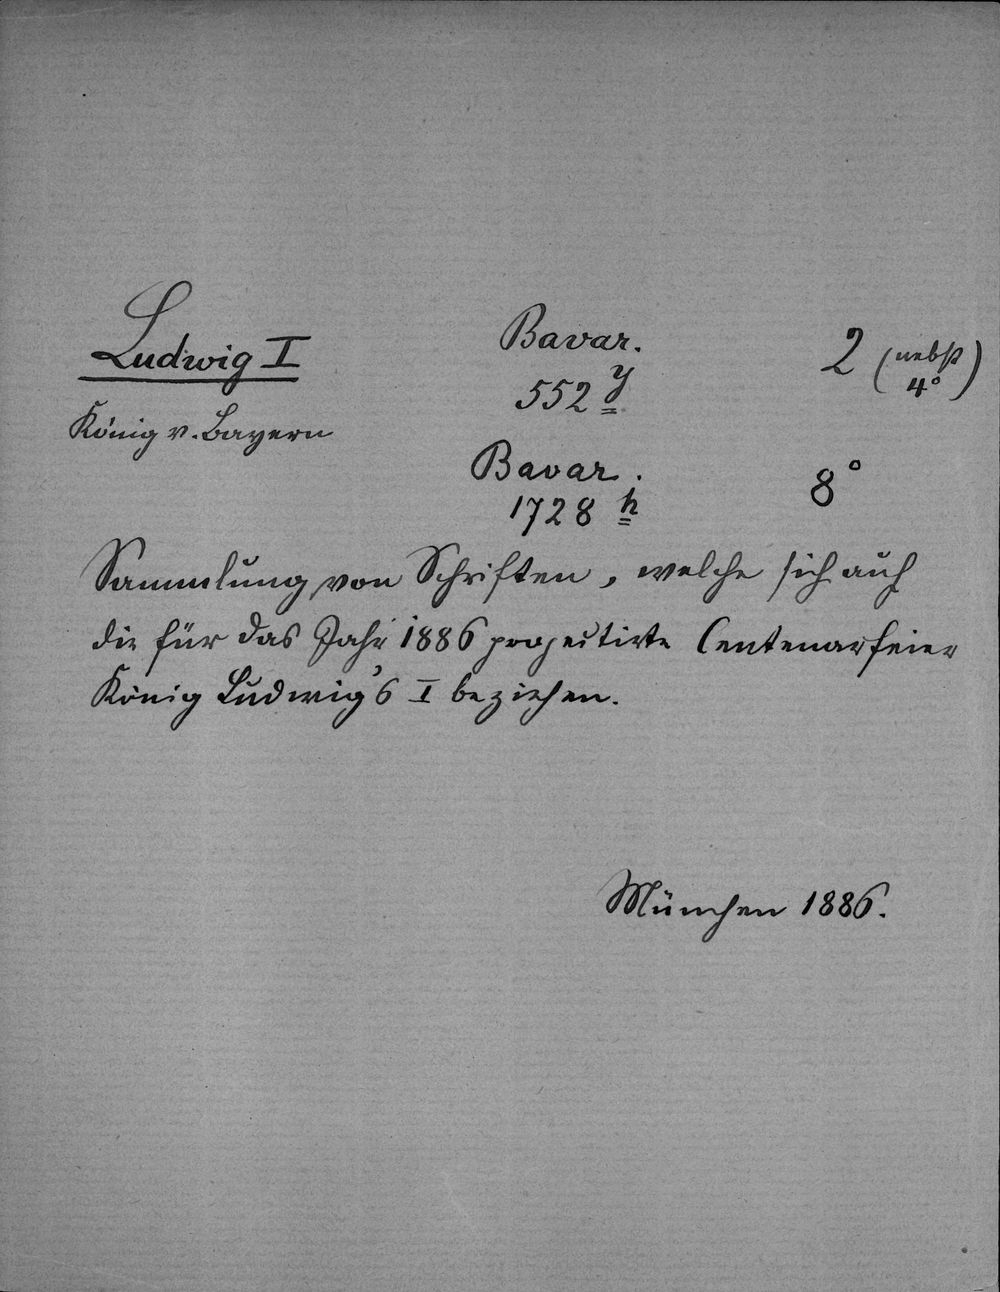 Ludwig I
König v. Bayern
Bavar. 2 (nebst
552 y 4°)
Bavar. 8°
1728 h
Sammlung von Schriften, welche sich auf
die für das Jahr 1886 projectirte Centenarfeier
König Ludwig's I beziehen.
München 1886.